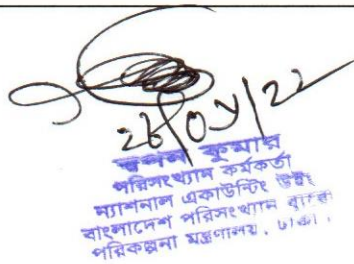 স্বপন কুমার
পরিসংখ্যান কর্মকর্তা
ন্যাশনাল একাউন্টিং উইং
বাংলাদেশ পরিসংখ্যান ব্যুরো
পরিকল্পনা মন্ত্রণালয়, ঢাকা।